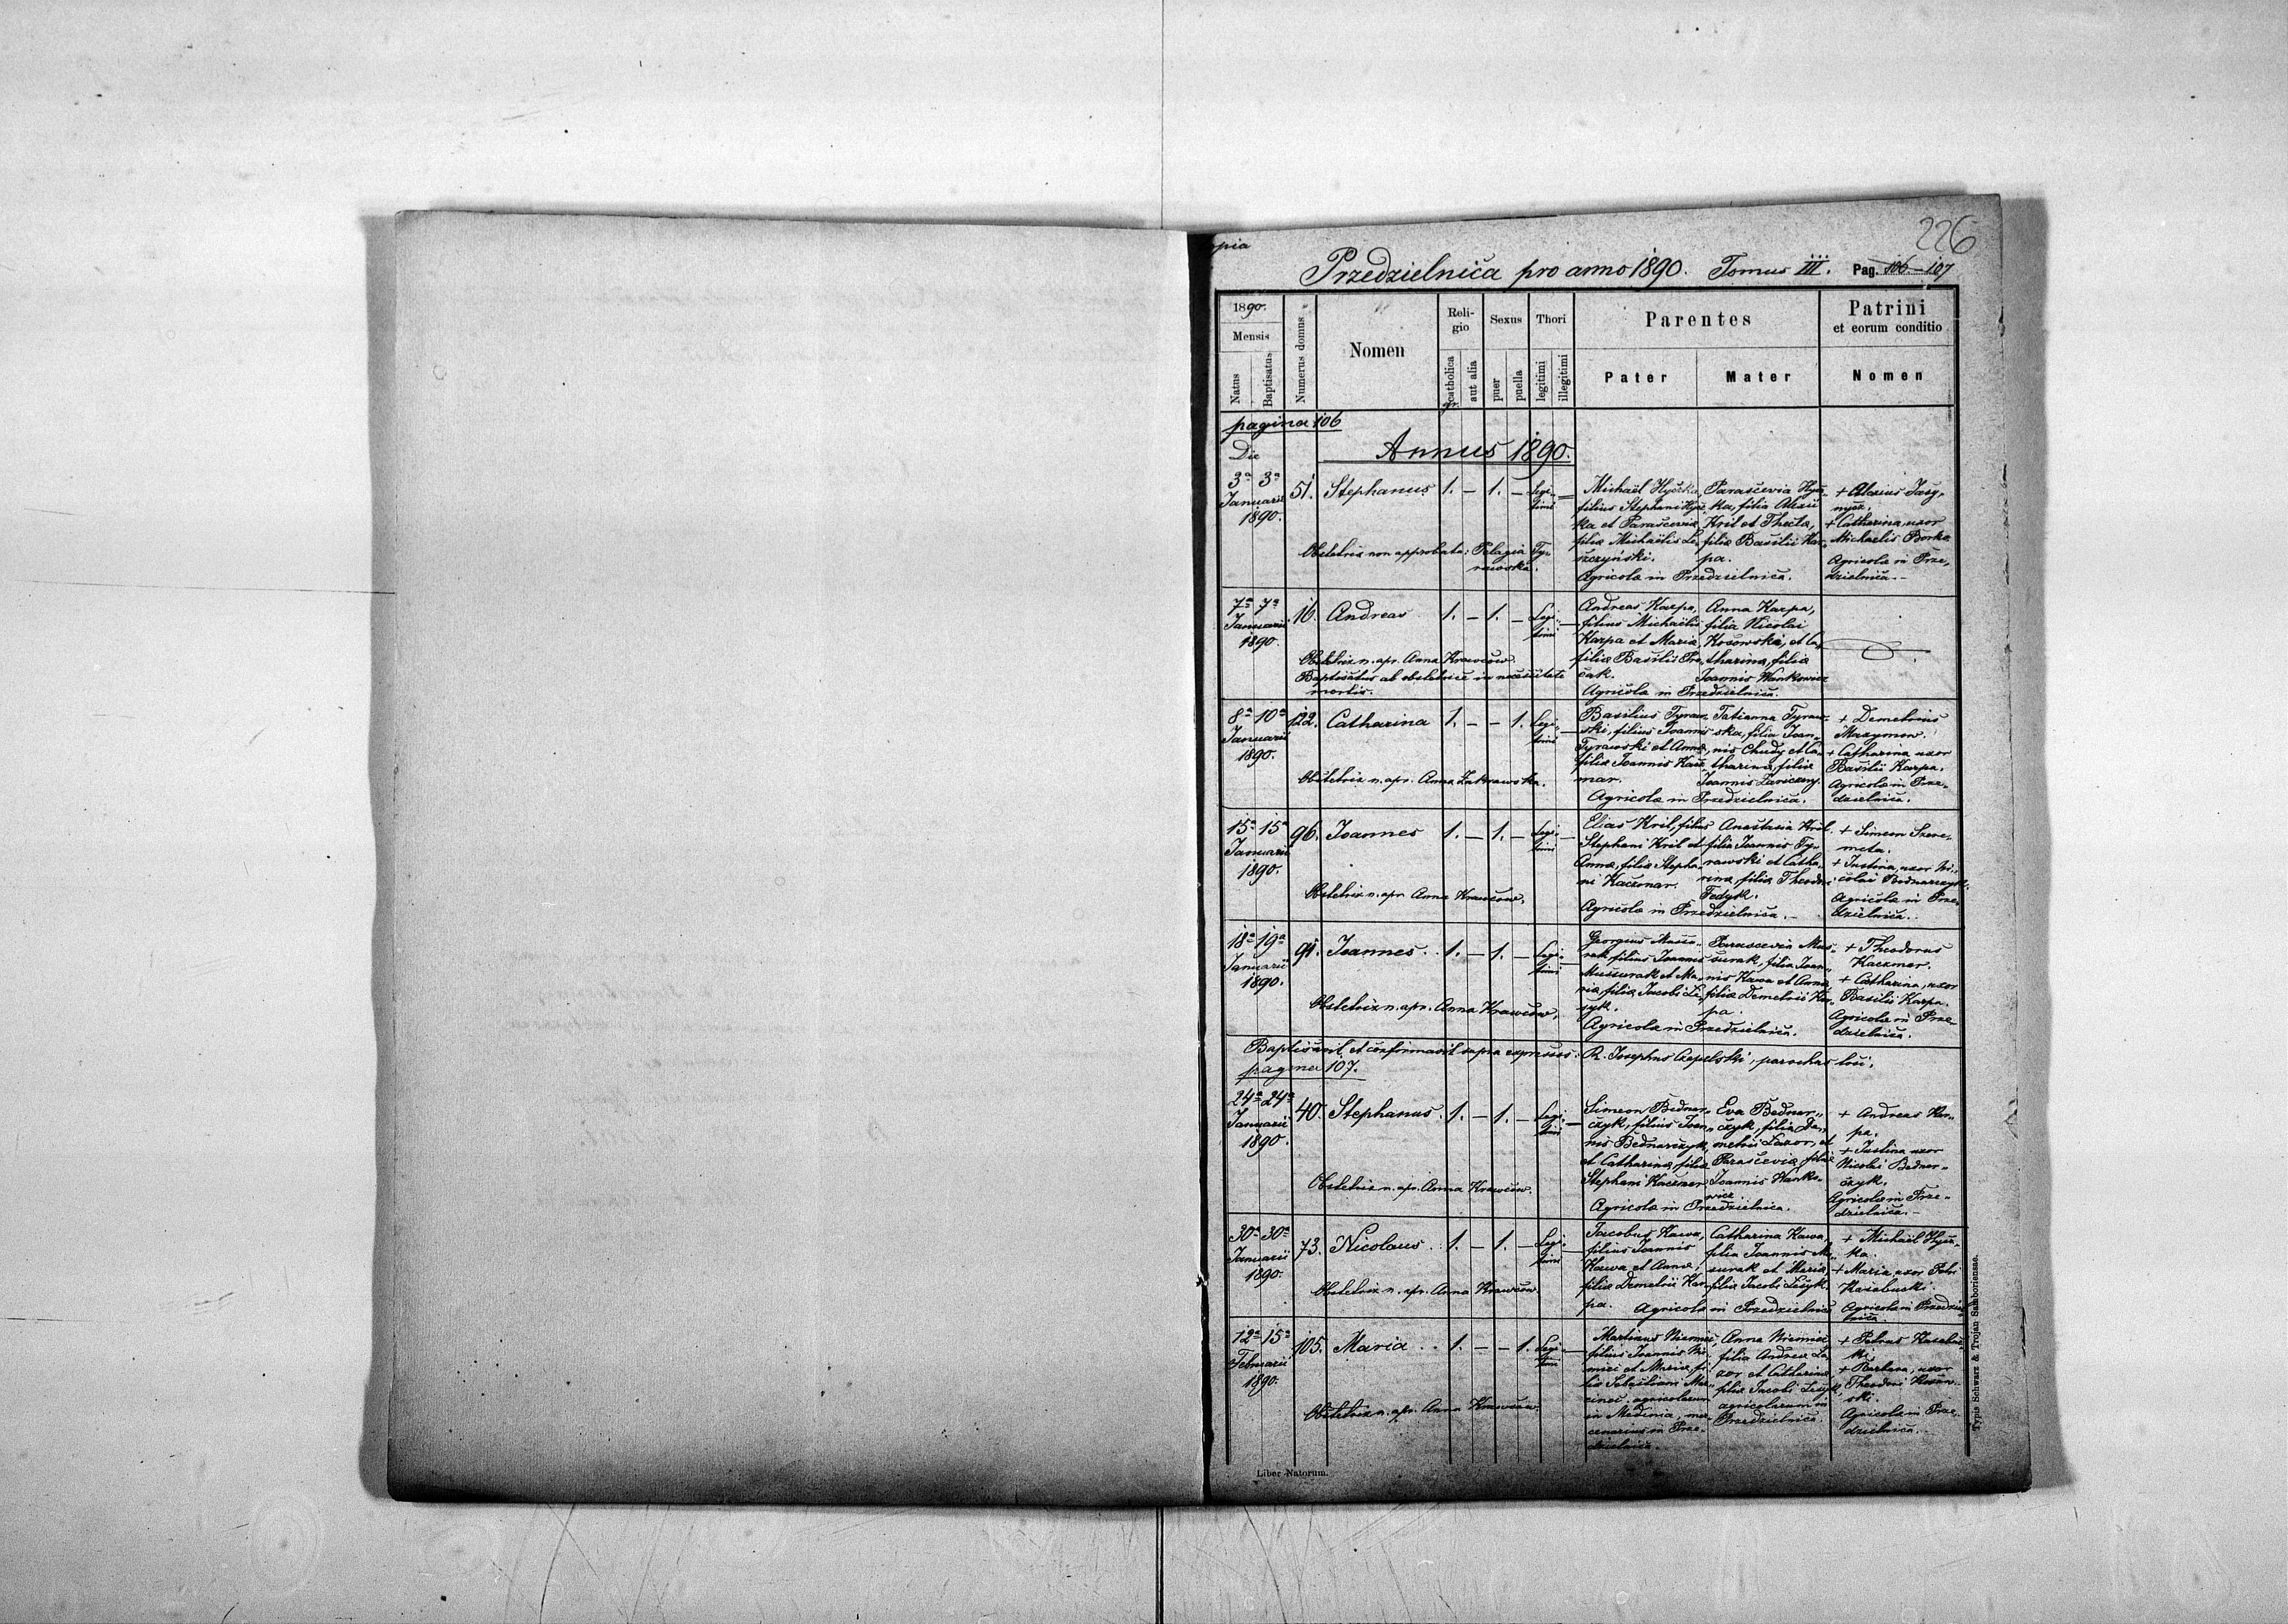 226
Przedzielnica pro anno 1890. Tomus III. Pag. 106-107
1890.
Mensis
Natus
Baptisatus
Numerus domus
Nomen
Religio
catholica
aut alia
Sexus
puer
puella
Thori
legitimi
illegitimi
Parentes
Pater
Mater
Patrini
et eorum conditio
Nomen
pagina 106
Die
Annus 1890.
3a 3a
Januarii
1890.
51.
Stephanus
1. — 1. — Legi-
timi
Obstetrix non approbata: Pelagia Ty-
rawska.
Michaël
filius Stephani
ka et Parascevia,
filia Michaëlis Le-
szczyński.
Agricolæ in Przedzielnica.
Parascevia
ka, filia Alexii
Kril et Thecla,
filia Basilii Kar-
pa.
+ Alexius
+ Catharina, uxor
Michaelis
Agricolæ in Prze-
dzielnica.
7a 7a
Januarii
1890.
16.
Andreas
1. — 1. — Legi-
timi
Obstetrix n. apr. Anna Krawców.
Baptisatus ab obstetrice in necessitate
mortis.
Andreas Karpa,
filius Michaëlis
Karpa et Maria,
filia Basilii
Agricolæ in Przedzielnica.
Anna Karpa,
filia Nicolai
Kosowski, et Ca-
tharina, filia
Joannis Wankowicz
8a 10a
Januarii
1890.
122.
Catharina
1. — — 1. Legi-
timi
Obstetrix n. apr. Anna Zakrawska.
Basilius Tyraw-
ski, filius Joannis
Tyrawski et Anna,
filia Joannis Kacz-
mar.
Agricolæ in Przedzielnica.
Tatianna Tyraw-
ska, filia Joan-
nis Chudy et Ca-
tharina, filia
Joannis
+ Demetrius
Mazymow.
+ Catharina uxor
Basilii Karpa.
Agricolæ in Prze-
dzielnica.
15a 15a
Januarii
1890.
96.
Joannes
1. — 1. — Legi-
timi
Obstetrix n. apr. Anna Krawców.
Elias Kril, filius
Stephani Kril et
Anna, filia Stepha-
ni Kaczmar.
Agricolæ in Przedzielnica.
Anastasia Kril
filia Joannis Ty-
rawski et Catha-
rina, filia Theodori
Fedyk.
+ Simeon Szere-
meta.
+ Justina, uxor Ni-
colai Bednarczyk.
Agricolæ in Prze-
dzielnica.
18a 19a
Januarii
1890.
91.
Joannes
1. — 1. — Legi-
timi
Obstetrix n. apr. Anna Krawców.
Georgius Massu-
rak filius Joannis
Mussurak et Ma-
ria, filia Jacobi Le-
syk.
Agricolæ in Przedzielnica.
Parascevia Mus-
surak, filia Joan-
nis Kawa et Anna,
filia Demetrii Kar-
pa.
+ Theodorus
Kaczmar.
+ Catharina, uxor
Basilii Karpa.
Agricolæ in Prze-
dzielnica.
Baptisavit et confirmavit supra expressos: R. Josephus Czapelski, parochus loci.
pagina 107.
24a 24a
Januarii
1890.
40.
Stephanus
1. — 1. — Legi-
timi
Obstetrix n. apr. Anna Krawców.
Simeon Bednar-
czyk, filius Joan-
nis Bednarczyk,
et Catharina, filia
Stephani Kaczmar
Agricolæ in Przedzielnica.
Eva Bednar-
czyk, filia De-
metrii Lazor, et
Parascevia, filia
Joannis Wanko-
wicz
+ Andreas Kar-
pa.
+ Justina uxor
Nicolai Bednar-
czyk.
Agricolæ in Prze-
dzielnica.
30a 30a
Januarii
1890.
73.
Nicolaus
1. — 1. — Legi-
timi
Obstetrix n. apr. Anna Krawców.
Jacobus Kawa,
filius Joannis
Kawa et Anna,
filia Demetrii Kar-
pa.
Agricolæ in Przedzielnica
Catharina Kawa,
filia Joannis Mu-
surak et Maria,
filia Jacobi Lesyk.
+ Michaël
ka.
+ Maria, uxor Petri
Agricolæ in Przedziel-
nica.
12a 15a
Februarii
1890.
105.
Maria
1. — — 1. Legi-
timi
Obstetrix n. apr. Anna Krawców.
Martinus Niemiec,
filius Joannis Nie-
miec et Maria, fi-
lia Sebastiani Mar-
ciniec, agricolarum
in Medinia, mer-
cenarius in Prze-
dzielnica.
Anna Niemiec
filia Andreæ La-
zor et Catharina,
filia Jacobi Lesyk,
agricolarum in
Przedzielnica.
+ Petrus
ski.
+ Barbara, uxor
Theodori Kosow-
ski.
Agricolæ in Prze-
dzielnica.
Liber Natorum.
Typis Schwarz & Trojan Samboriensae.